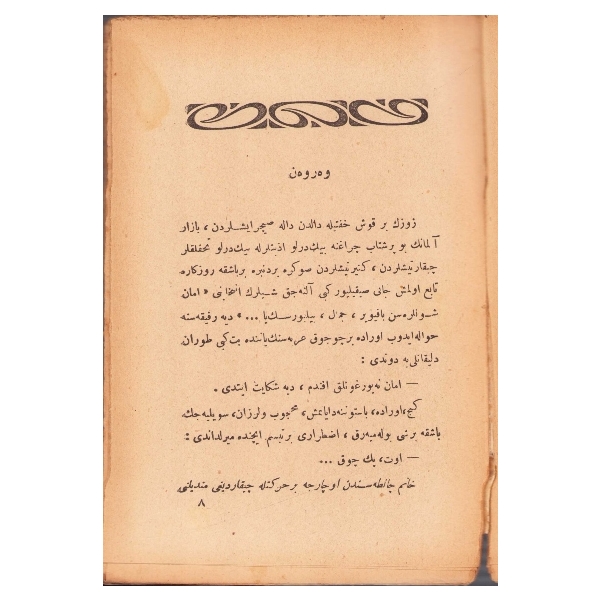 وەرووەن
زوزك بر قوش خفتيله دالدن داله صيچرايشلردن، بازار
آلمانك بو پرشتاب چراغنه بيك درلو اذيتلرله بيك درلو تحفلقلر
چيقارتيشلردن، كتيرتيشلردن صوكره بردنبره برباشقه روزكاره
تابع اولمش جانى صيقيليور كبى آلنه جق شيلرك انتخابنى « امان
شونلره سن باقيوير، جمال، بيليورسك يا ... » ديه رفيقه سنه
حواله ايدوب اوراده بر چوجوق عربه سنك ياننده بت كبى طوران
دليقانلى يه دوندى :
— امان نه يورغونلق افندم، ديه شكايت ايتدى .
كنج، اوراده، باستوننه دايانمش، محجوب ولرزان، سويليه جك
باشقه برشى بوله ميه رق، اضطرارى بر تبسم ايچنده ميرلداندى :
— اوت، پك چوق ...
خانم چانطه سندن اوچارجه بر حركتله چيقارديغى منديلنى
٨